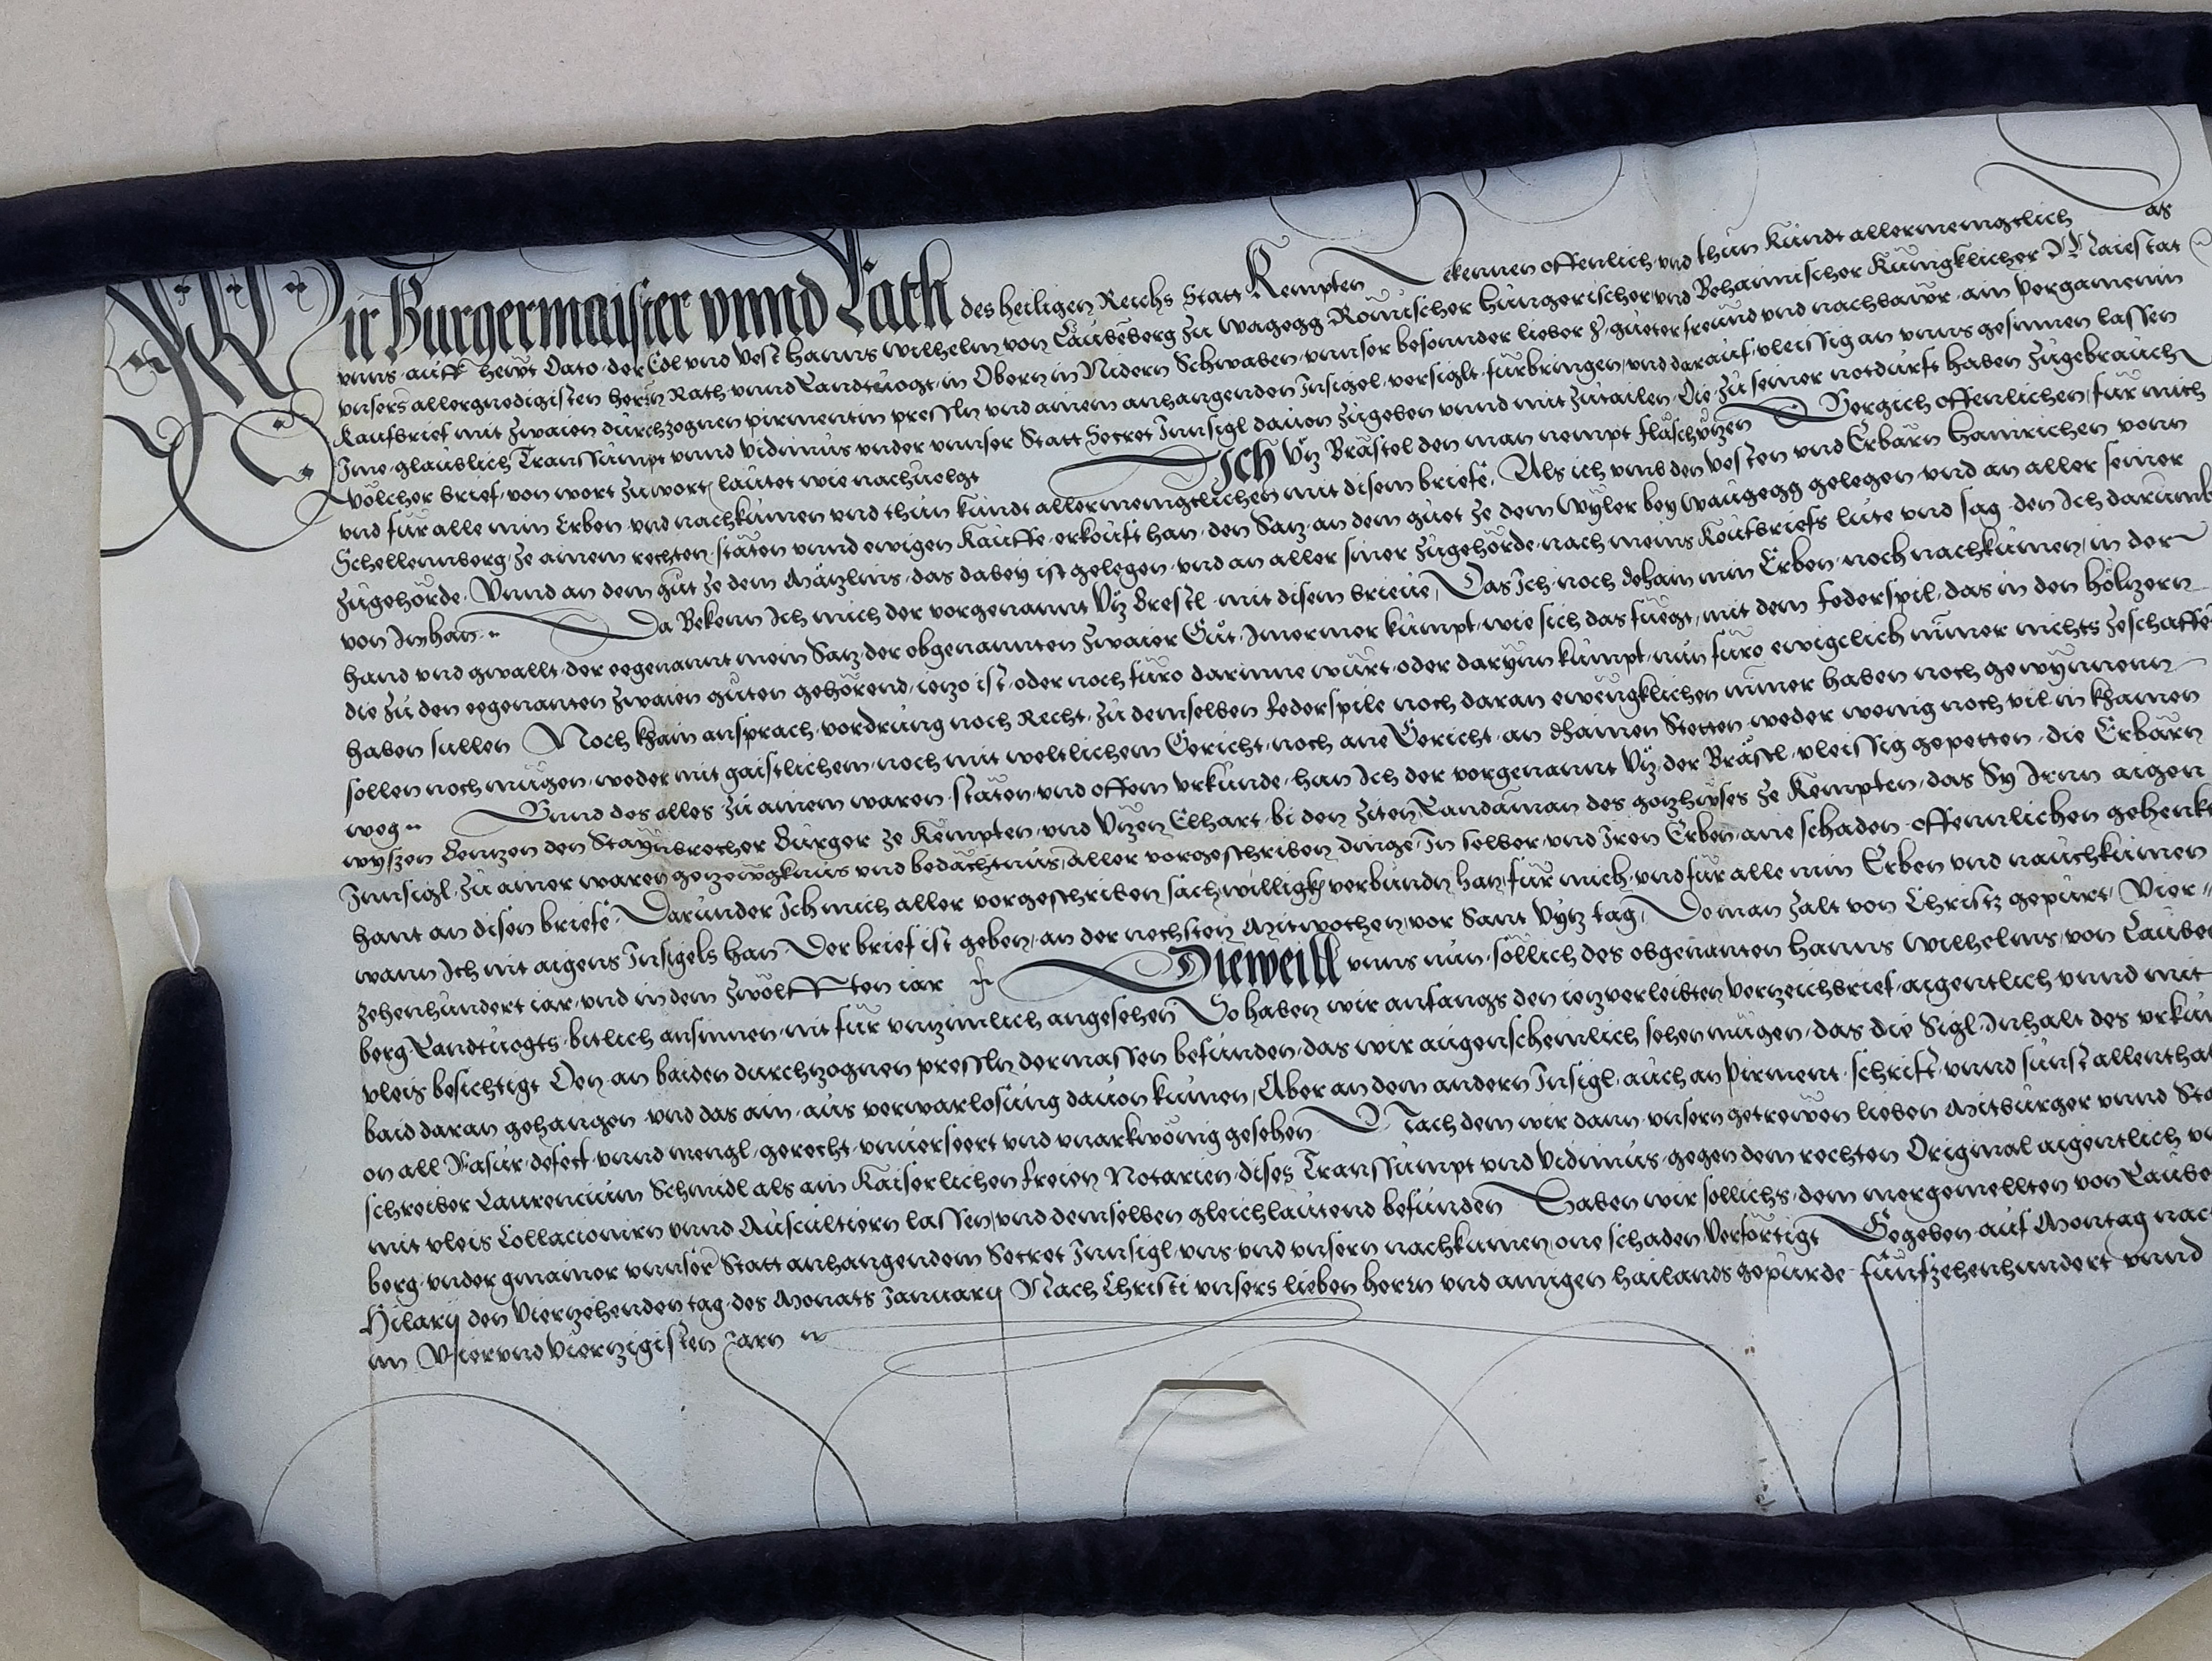 Wir Burgermaister vnnd Räth des heiligen Reichs Statt Kempten Bekennen offenlich vnd thun kundt allermenigclich Das
vnns auff heüt Dato der Edl vnd Vest Hanns Wilhelm von Laubenberg zu Wagegg Römischer Hungerischer vnd Behaimischer Künigklicher Maiestat
vnsers allergnedigisten herrn Rath vnnd Landtuogt in Obern in Nidern Schwaben vnnser besonnder lieber gueter freund vnd nachbawr ain Pergamenin
Kaufbrief mit zwaien durchzognen pirmentin pressln vnd ainem anhangenden Insigel versiglt fürbringen vnd darauf vleissig an vnns gesinnen lassen
Ime glaublich Transsumpt vnnd Vidimus vnder vnnser Statt Secret Innsigl dauon zugeben vnnd mit zutailen Die zu seiner notdurft haben zugebrauch
Völcher brief von wort zu wort lautet wie nachuolgt Ich Vtz Brästel den man nempt fläschutzen Vergich offenlichen für mich
vnd für alle min Erben vnd nachkumen vnd thun kundt allermenigclichen mit disem briefe, Als ich vmb den Vesten vnd Erbarn Hainrichen vonn
Schellennberg ze ainem rechten stäten vnnd ewigen Kauffe erkouft han den Satz an dem guet ze dem Wyler bey Waugegg gelegen vnd an aller seiner
zugehörde Vnnd an dem gut ze dem Mätzlins das dabey ist gelegen vnd an aller siner zugehörde nach meins Koufbriefs lute vnd sag den Ich darumb
von Im han Da Bekenn Ich mich der vorgenannt Vtz Brestl mit disem brieue, Das Ich noch dehain min Erben noch nachkumen in der
hand vnd gwallt der eegenannt mein Satz der obgenannten zwaier Güt Imermer kumpt wie sich das fuegt mit dem Federspil das in den höltzern
die zu den eegenanten zwaien guten gehörend ietzo ist oder noch füro darinne würt oder darynn kumpt nun füro ewigclich nimer nichts zeschaffen
haben sullen Noch khain ansprach vordrung noch Recht zu demselben Federspile noch daran ewengklichen nimer haben noch gewynnenn
sollen noch mügen weder mit gaistlichem noch mit weltlichem Gericht noch ane Gericht an dhainen Stetten weder wenig noch vil in khainen
weg Vnnd des alles zu ainem waren stäten vnd offem vrkunde han Ich der vorgenannt Vtz der Brästl vleissig gepetten die Erbarn
wyszen Bentzen den Stayinbrecher Burger ze Kempten vnd Vtzen Ebhart bi den ziten Landaman des gotzhuses ze Kempten das Sy Irnn aigen
Innsigl zu ainer waren getzewgknus vnd bedächtnus aller vorgeschriben dinge In selber vnd Iren Erben ane schaden offennlichen gehenkt
hant an disen briefe Darunder Ich mich aller vorgeschriben sach willigk verbunden han für mich vnd für alle min Erben vnd nauchkumen
wann Ich nit aigens Insigels han Der brief ist geben an der nechsten Mitwochen vor Sant Vytz tag Do man zalt von Christz gepurt Vier
zehenhundert iar vnd in dem zwölfften iar Dieweill vnns nun söllich des obgenanten Hanns Wilhelms von Lauben
berg Landtuogts bitlich ansinnen nit für vnzimlich angesehen So haben wir anfangs den ietzverleibten Vertzeichbrief aigentlich vnnd mit
vleis besichtigt Den an baiden durchzognen pressln dermassen befunden das wir augenscheinlich sehen mügen das die Sigl Inhalt des vrkun
baid daran gehangen vnd das ain aus verwarlosung dauon kumen, Aber an dem andern Insigl auch an Pirment schrift vnnd sunst allenthal
on all Rasur defect vnnd mengl gerecht vnuerseert vnd vnarkwönig gesehen Nach dem wir dann vnsern getrewen lieben Mitburger vnnd Sta
schreiber Laurencium Schmidl als ain Kaiserlichen freien Notarien dises Transsumpt vnd Vidimus gegen dem rechten Original aigentlich vn
mit vleis Collacioniern vnnd Auscultiern lassen vnd demselben gleichlautend befunden Haben wir sollichs dem mergemellten von Lauben
berg vnder gmainer vnnser Statt anhangendem Secret Innsigl vns vnd vnsern nachkumen one schaden Verfertigt Gegeben auf Montag nach
Hilarij den Vierzehenden tag des Monats January Nach Christi vnsers lieben herrn vnd ainigen hailands gepurde fünfzehenhundert vnnd
im Viervndviertzigisten Jarn